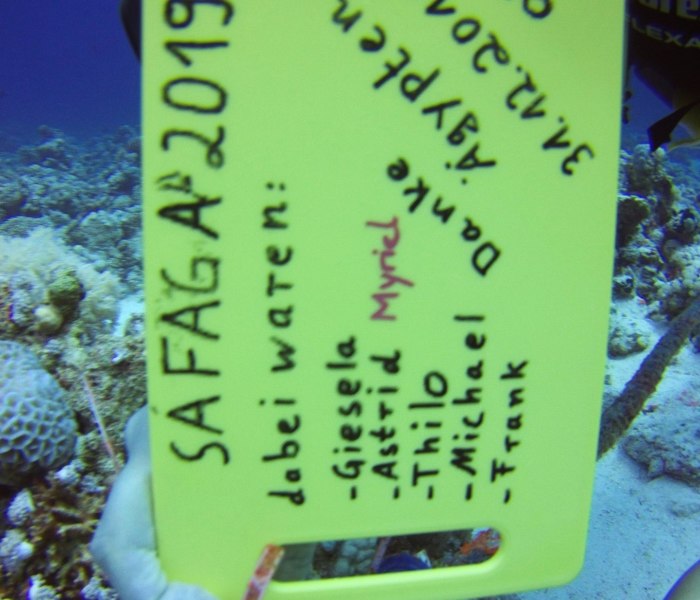 SAFAGA 2019
dabei waren:
- Giesela
- Astrid Myriel
- Thilo
- Michael
- Frank
Danke
Ägypten
31.12.201
FLEXA